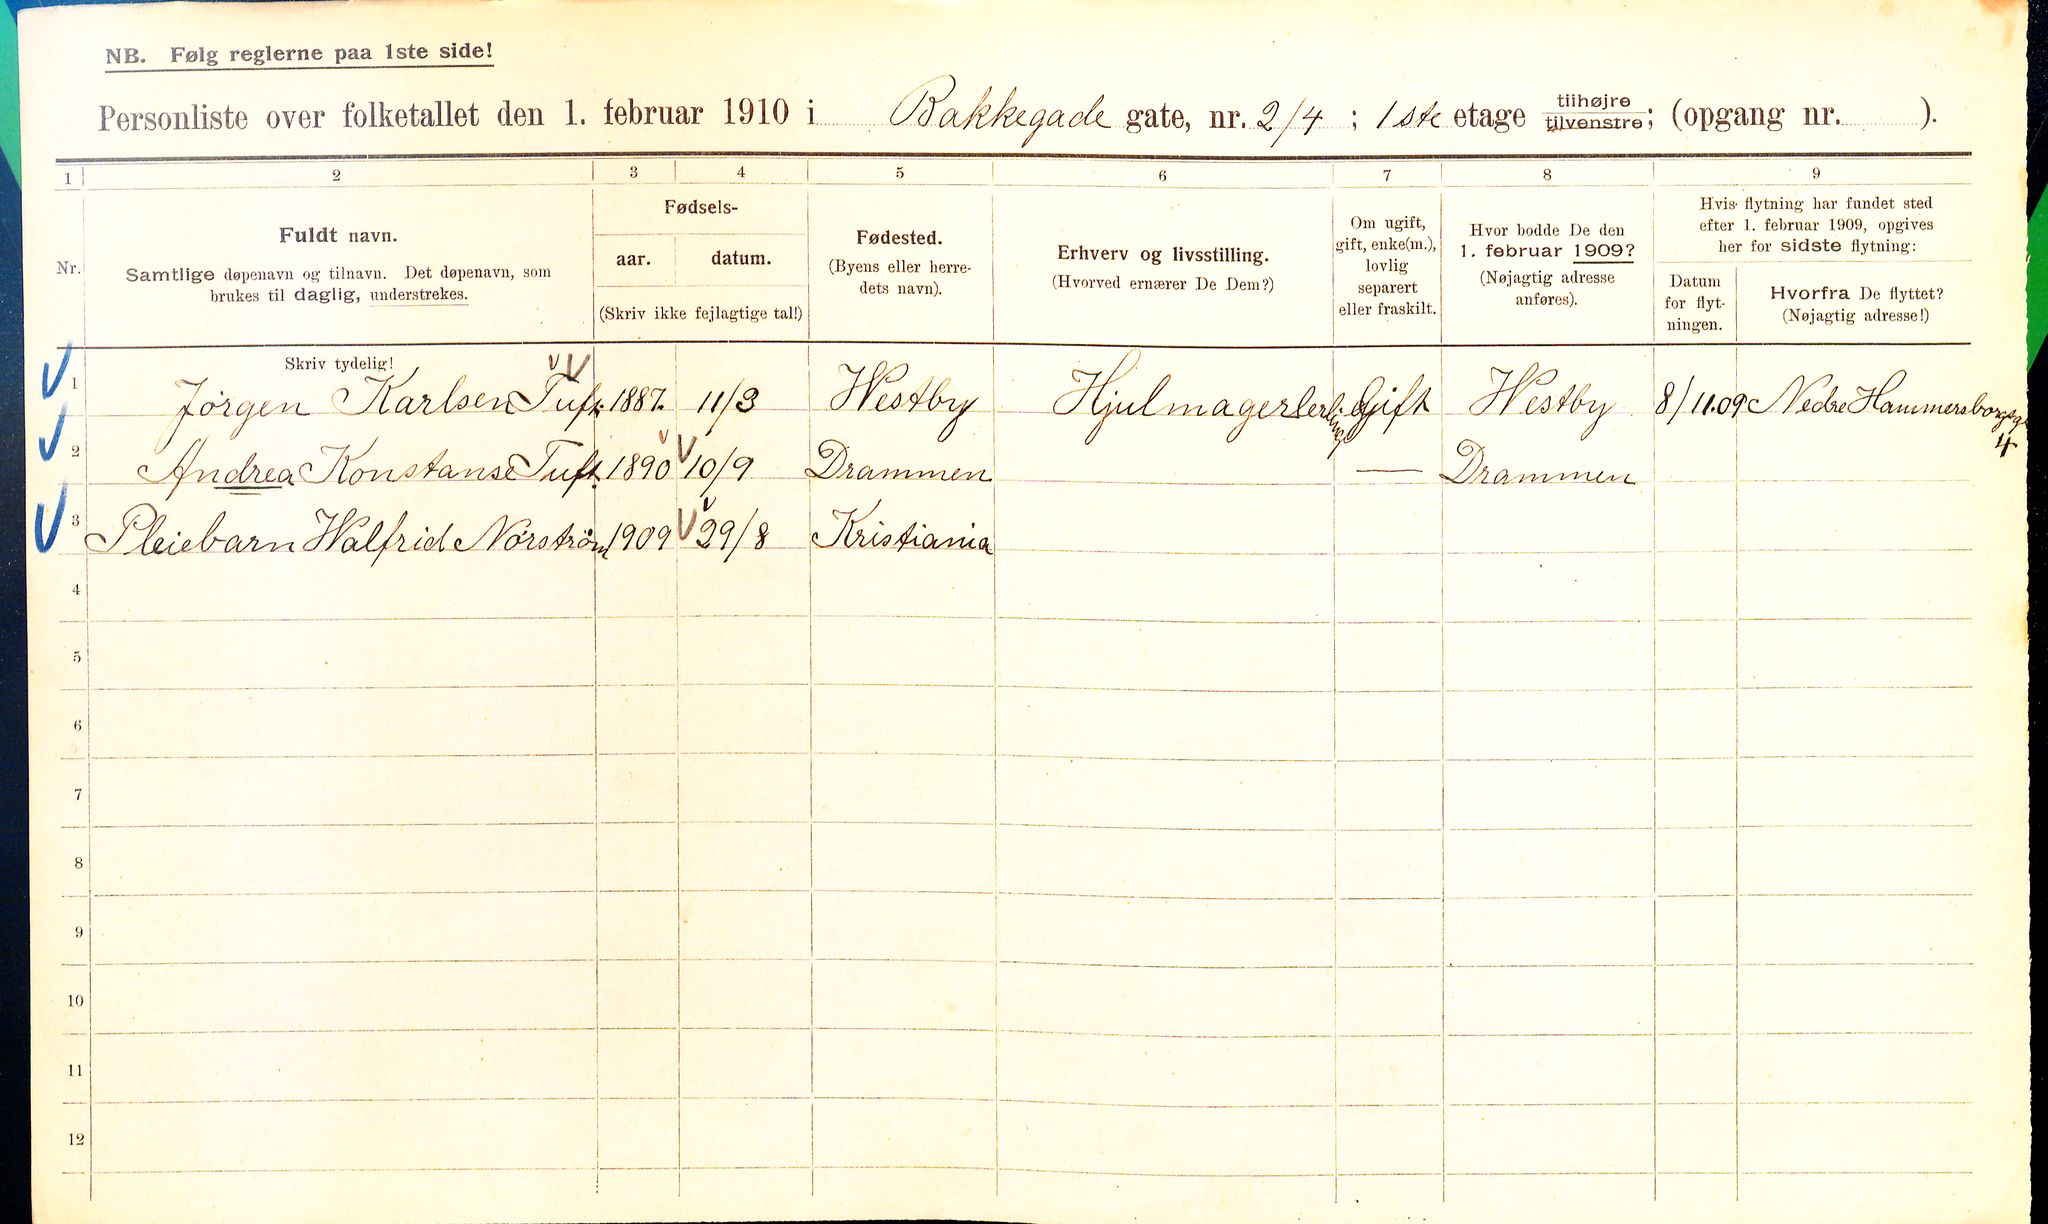 NB. Følg reglerne paa 1ste side!
Personliste over folketallet den 1. februar 1910 i Bakkegade gate, nr. 2/4 ; 1ste etage tilhøjre tilvenstre; (opgang nr. ).
1 2 3 4 5 6 7 8 9
Nr.
Fuldt navn.
Samtlige døpenavn og tilnavn. Det døpenavn, som
brukes til daglig, understrekes.
Skriv tydelig!
Fødsels-
aar. datum.
(Skriv ikke fejlagtige tal!)
Fødested.
(Byens eller herre-
dets navn).
Erhverv og livsstilling.
(Hvorved ernærer De Dem?)
Om ugift,
gift, enke(m.),
lovlig
separert
eller fraskilt.
Hvor bodde De den
1. februar 1909?
(Nøjagtig adresse
anføres).
Hvis flytning har fundet sted
efter 1. februar 1909, opgives
her for sidste flytning:
Datum
for flyt-
ningen.
Hvorfra De flyttet?
(Nøjagtig adresse!)
1 Jørgen Karlsen Tuft 1887. 11/3 Westby Hjulmagerlerling Gift Westby 8/11.09 Nedre Hammersborgsg. 4
2 Andrea Konstanse Tuft. 1890 10/9 Drammen — Drammen
3 Pleiebarn Walfrid Nørstrøm 1909 29/8 Kristiania
4
5
6
7
8
9
10
11
12